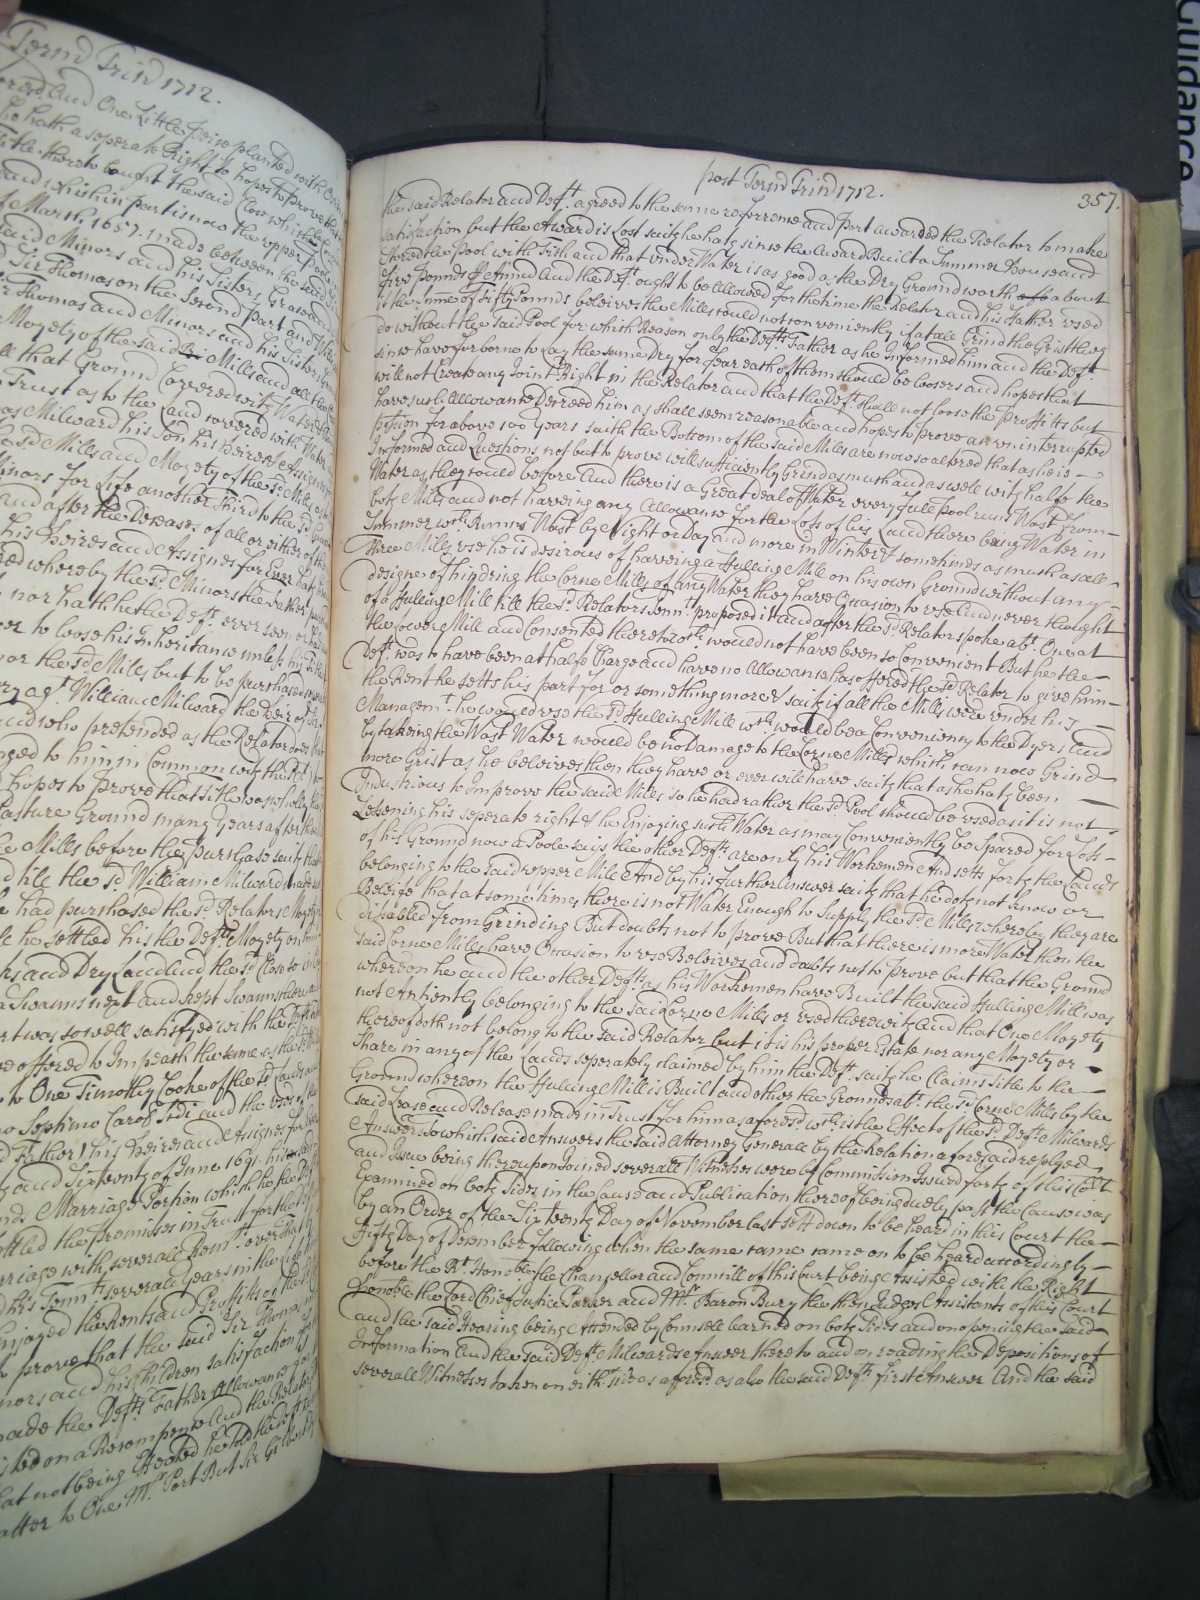 Termd Trind 1712.
and One Little peice planted with
he hath a seperate Right to hopes to prove
Title thereto bought the said Close which
and which in part is now the upper Poole
of March 1657. made between the said
and Minors and his Sisters Grace and
Sir Thomas on the Second part and
Sir Thomas and Minors and his Sisters
Moyety of the said Mills and all the
all that Ground Covered with Water
Trust as to the Land covered with Water
Milward his Son his heires & Assignes
Mills and Moyety of the sd. Mills
Minors for Life another Third to the
and after the Decease of all or either of the
his heires and Assignes for Ever
whereby the sd. Minors the
nor hath he the Deft. ever seen or
to loose his Inheritance unless
or the sd. Mills but to be purchased
agt. William Milward the heir of
and who pretended as the Relator does
to him in Common with the
hopes to prove that Site was wholly
Pasture Ground many years after
Mills before the purchase saith that
till the sd. William Milward
had purchased the sd. Relators Moyety
he settled his the Defts. Moyety on
and Dry Land and the sd. Close so
Swanns next and kept Swanns there
was so well satisfyed with the
offered to Impeach the same as the
to One Timothy Cooke of the sd. Lands
Septimo Caroli Sedi and the uses of
Father his heires and Assignes for
and Sixteenth of June 1691.
Marriage Portion which he the
settled the premisses in Trust for the
marriage with severall Remrs. over
his Tennts. severall years in the
enjoyed the Rents and Proffitts of the
prove that the said Sir Thomas
Minors and his Children satisfaction
made the Defts. Father Allowance
on a Recompence And the Relator
that not being Effected he told the Deft.
matter to One Mr. Port But Sir Gilbert
post Termd Trind 1712.
357.
the said Relator and Deft. agreed to the same referrence and Port awarded the Relator to make
satisfaction but the Award is Lost saith he hath since the Award Built a Summer house and
stored the Pool with Fish and that under Water is as good as the Dry Ground worth about
five Pounds P Annum And the Deft. ought to be Allowed for the time the Relator and his Father used
it the summe of Fifty Pounds beleives the Mills could not conveniently if at all Grind the Grist they
do without the said Pool for which Reason only the Defts. Father as he Informed him and the Deft.
since have forborne to Lay the same Dry for fear each of them should be loosers and hopes that
will not Create any Joint Right in the Relator and that the Deft. shall not loose the proffitts but
have such Allowance Decreed him as shall seem reasonable and hopes to prove an uninterrupted
possion for above 100 years saith the Bottom of the said Mills are now so altered that as he is
Informed and Questions not but to prove will sufficiently Grind as much and as well with halfe the
Water as they would before And there is a Great deal of Water every full pool runs Wast from
both Mills and not haveing any Allowance for the Loss of his Land there being Water in
Summer wch. Runns Wast by Night or Day and more in Winter & sometimes as much as all
three Mills use he is desirous of haveing a Fulling Mill on his own Ground without any
designe of hindring the Corne Mills of any Water they have Occasion to use And never thought
of a Fulling Mill till the sd. Relators Tennt. proposed it and after the sd. Relator spoke abt. One at
the Lower Mill and Consented thereto wch. would not have been so Convenient But he the
Deft. was to have been at halfe Charge and have no Allowance has offered the sd. Relator to give him
the Rent he setts his part for or something more & saith if all the Mills were under his
Managemt. he would use the sd. Fulling Mill wch. would be a Conveniency to the Dyers and
by takeing the Wast Water would be no Damage to the Corne Mills which can now Grind
more Grist as he beleives then they have or ever will have saith that as he hath been
Industrious to Improve the said Mills so he had rather the sd. Pool should be used as it is not
Lessening his seperate right & he Enjoying such Water as may Conveniently be spared for Loss
of his Ground now a Poole says the other Defts. are only his Workemen And setts forth the Lands
belonging to the said upper Mill And by his further Answer saith that he doth not know or
Beleive that at some times there is not Water Enough to Supply the sd. Mills whereby they are
disabled from Grinding But doubts not to prove But that there is more Water then the
said Corne Mills have Occasion to use Beleives and doubts not to prove but that the Ground
whereon he and the other Defts. as his Workemen have Built the said Fulling Mill was
not Antiently belonging to the said Corne Mills or used therewith And that One Moyety
thereof doth not belong to the said Relator but it is his proper Estate nor any Moyety or
Share in any of the Lands seperately claimed by him the Deft. saith he Claims Title to the
Ground whereon the Fulling Mill is Built and other the Grounds abt. the sd. Corne Mills by the
said Lease and Release made in Trust for him as aforesd. wch. is the Effect of the sd. Deft. Milwards
Answers to which said Answers the said Attorney Generall by the Relation aforesaid replyed
and Issue being thereupon Joined severall Witnesses were by Commission Issued forth of this Cort
Examined on both sides in the Cause and Publication thereof being duely past the Cause was
by an Order of the Sixteenth Day of November last sett down to be heard in this Court the
Fifth Day of December following when the same came came on to be heard accordingly
before the Rt. Honoble. the Chancellor and Councill of this Court being Assisted with the Right
Honoble. the Lord Chief Justice Parker and Mr. Baron Bury the then Judges Assistants of this Court
and the said Hearing being Attended by Councell learned on both Sides and on opening the said
Information And the said Deft. Milwards Answer thereto and on reading the Depositions of
severall Witnesses taken on eithr. side as aforesd. as also the said Defts. first Answer And the said
Guidance